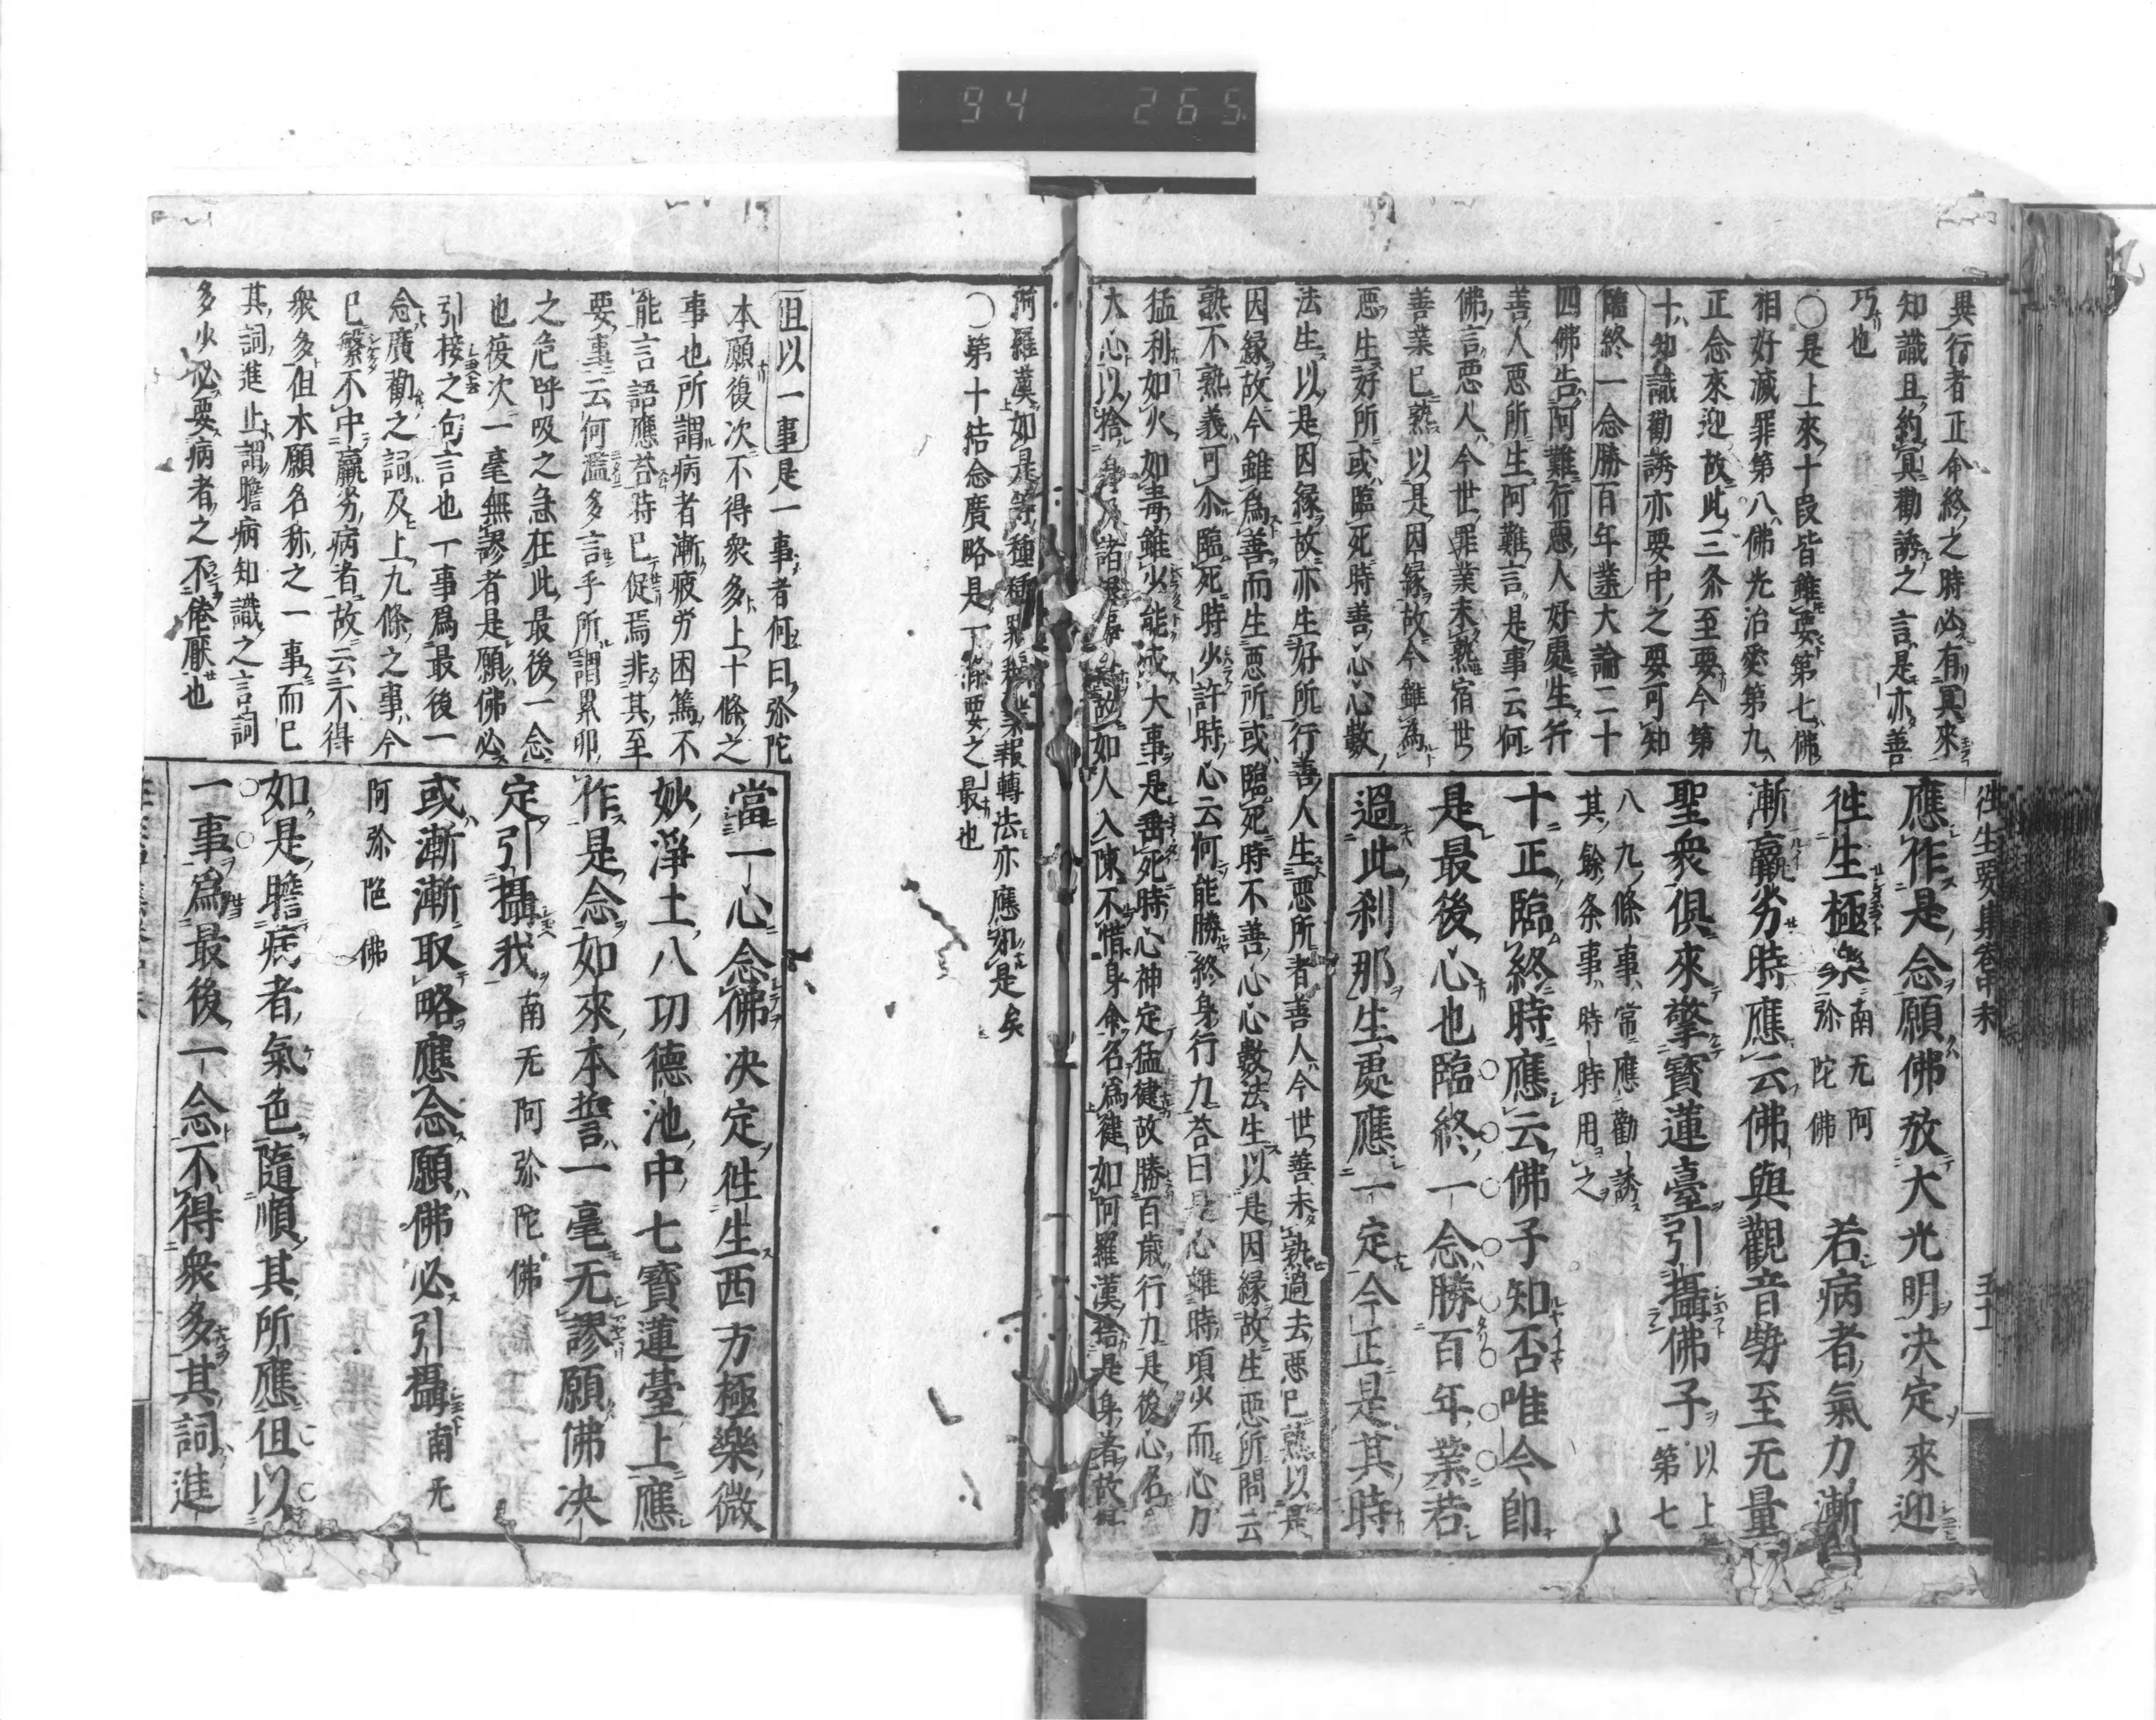 94 265
往生要集卷中末
五十一
異行者正命終之時必有異來
知識且約冥勸誘之言是亦善
巧也
○是上來十段皆雖要第七佛
相好滅罪第八佛光治癹第九
正念來迎故此三条至要今第
十知識勸誘亦要中之要可知
臨終一念勝百年業大論二十
四佛告阿難行惡人好處生行
善人惡所生阿難言是事云何
佛言惡人今世罪業未熟宿世
善業已熟以是因緣故今雖為
惡生好所或臨死時善心心數
法生以是因緣故亦生好所行善人生惡所者善人今世善未熟過去惡已熟以是
因緣故今雖為善而生惡所或臨死時不善心心數法生以是因緣故生惡所問云
熟不熟義可尒臨死時少許時心云何能勝終身行力荅曰是心雖時頃少而心力
猛利如火如毒雖少能成大事是垂死時心神定猛健故勝百歲行力是後心名
大心以捨身及諸根事急故如人入陳不惜身命名為健如阿羅漢捨是身著故得
應作是念願佛放大光明决定來迎
往生極樂南无阿弥陀佛 若病者氣力漸
漸羸劣時應云佛與觀音勢至无量
聖衆俱來擎寶蓮臺引攝佛子以上第七
八九條事常應勸誘
其餘条事時時用之
十正臨終時應云佛子知否唯今即
是最後心也臨終一念勝百年業若
過此刹那生處應一定今正是其時
阿羅漢如是等種種罪福業報轉法亦應如是矣
○第十結念廣略是下條要之最也
但以一事是一事者何曰弥陀
本願復次不得衆多上十條之
事也所謂病者漸疲労困篤不
能言語應荅時已促焉非其至
要事云何濫多言乎所謂累卵
之危呼吸之急在此最後一念
也復次一毫無謬者是願佛必
引接之句言也一事爲最後一
念廣勸之詞及上九條之事今
已繁不中羸劣病者故云不得
衆多但本願名称之一事而已
其詞進止謂瞻病知識之言詞
多少必要病者之不倦厭也
當一心念佛决定往生西方極樂微
妙淨土八功德池中七寶蓮臺上應
作是念如來本誓一毫无謬願佛决
定引攝我南无阿弥陀佛
或漸漸取略應念願佛必引攝南无
阿弥陀佛
如是瞻病者氣色隨順其所應但以
一事爲最後一念不得衆多其詞進